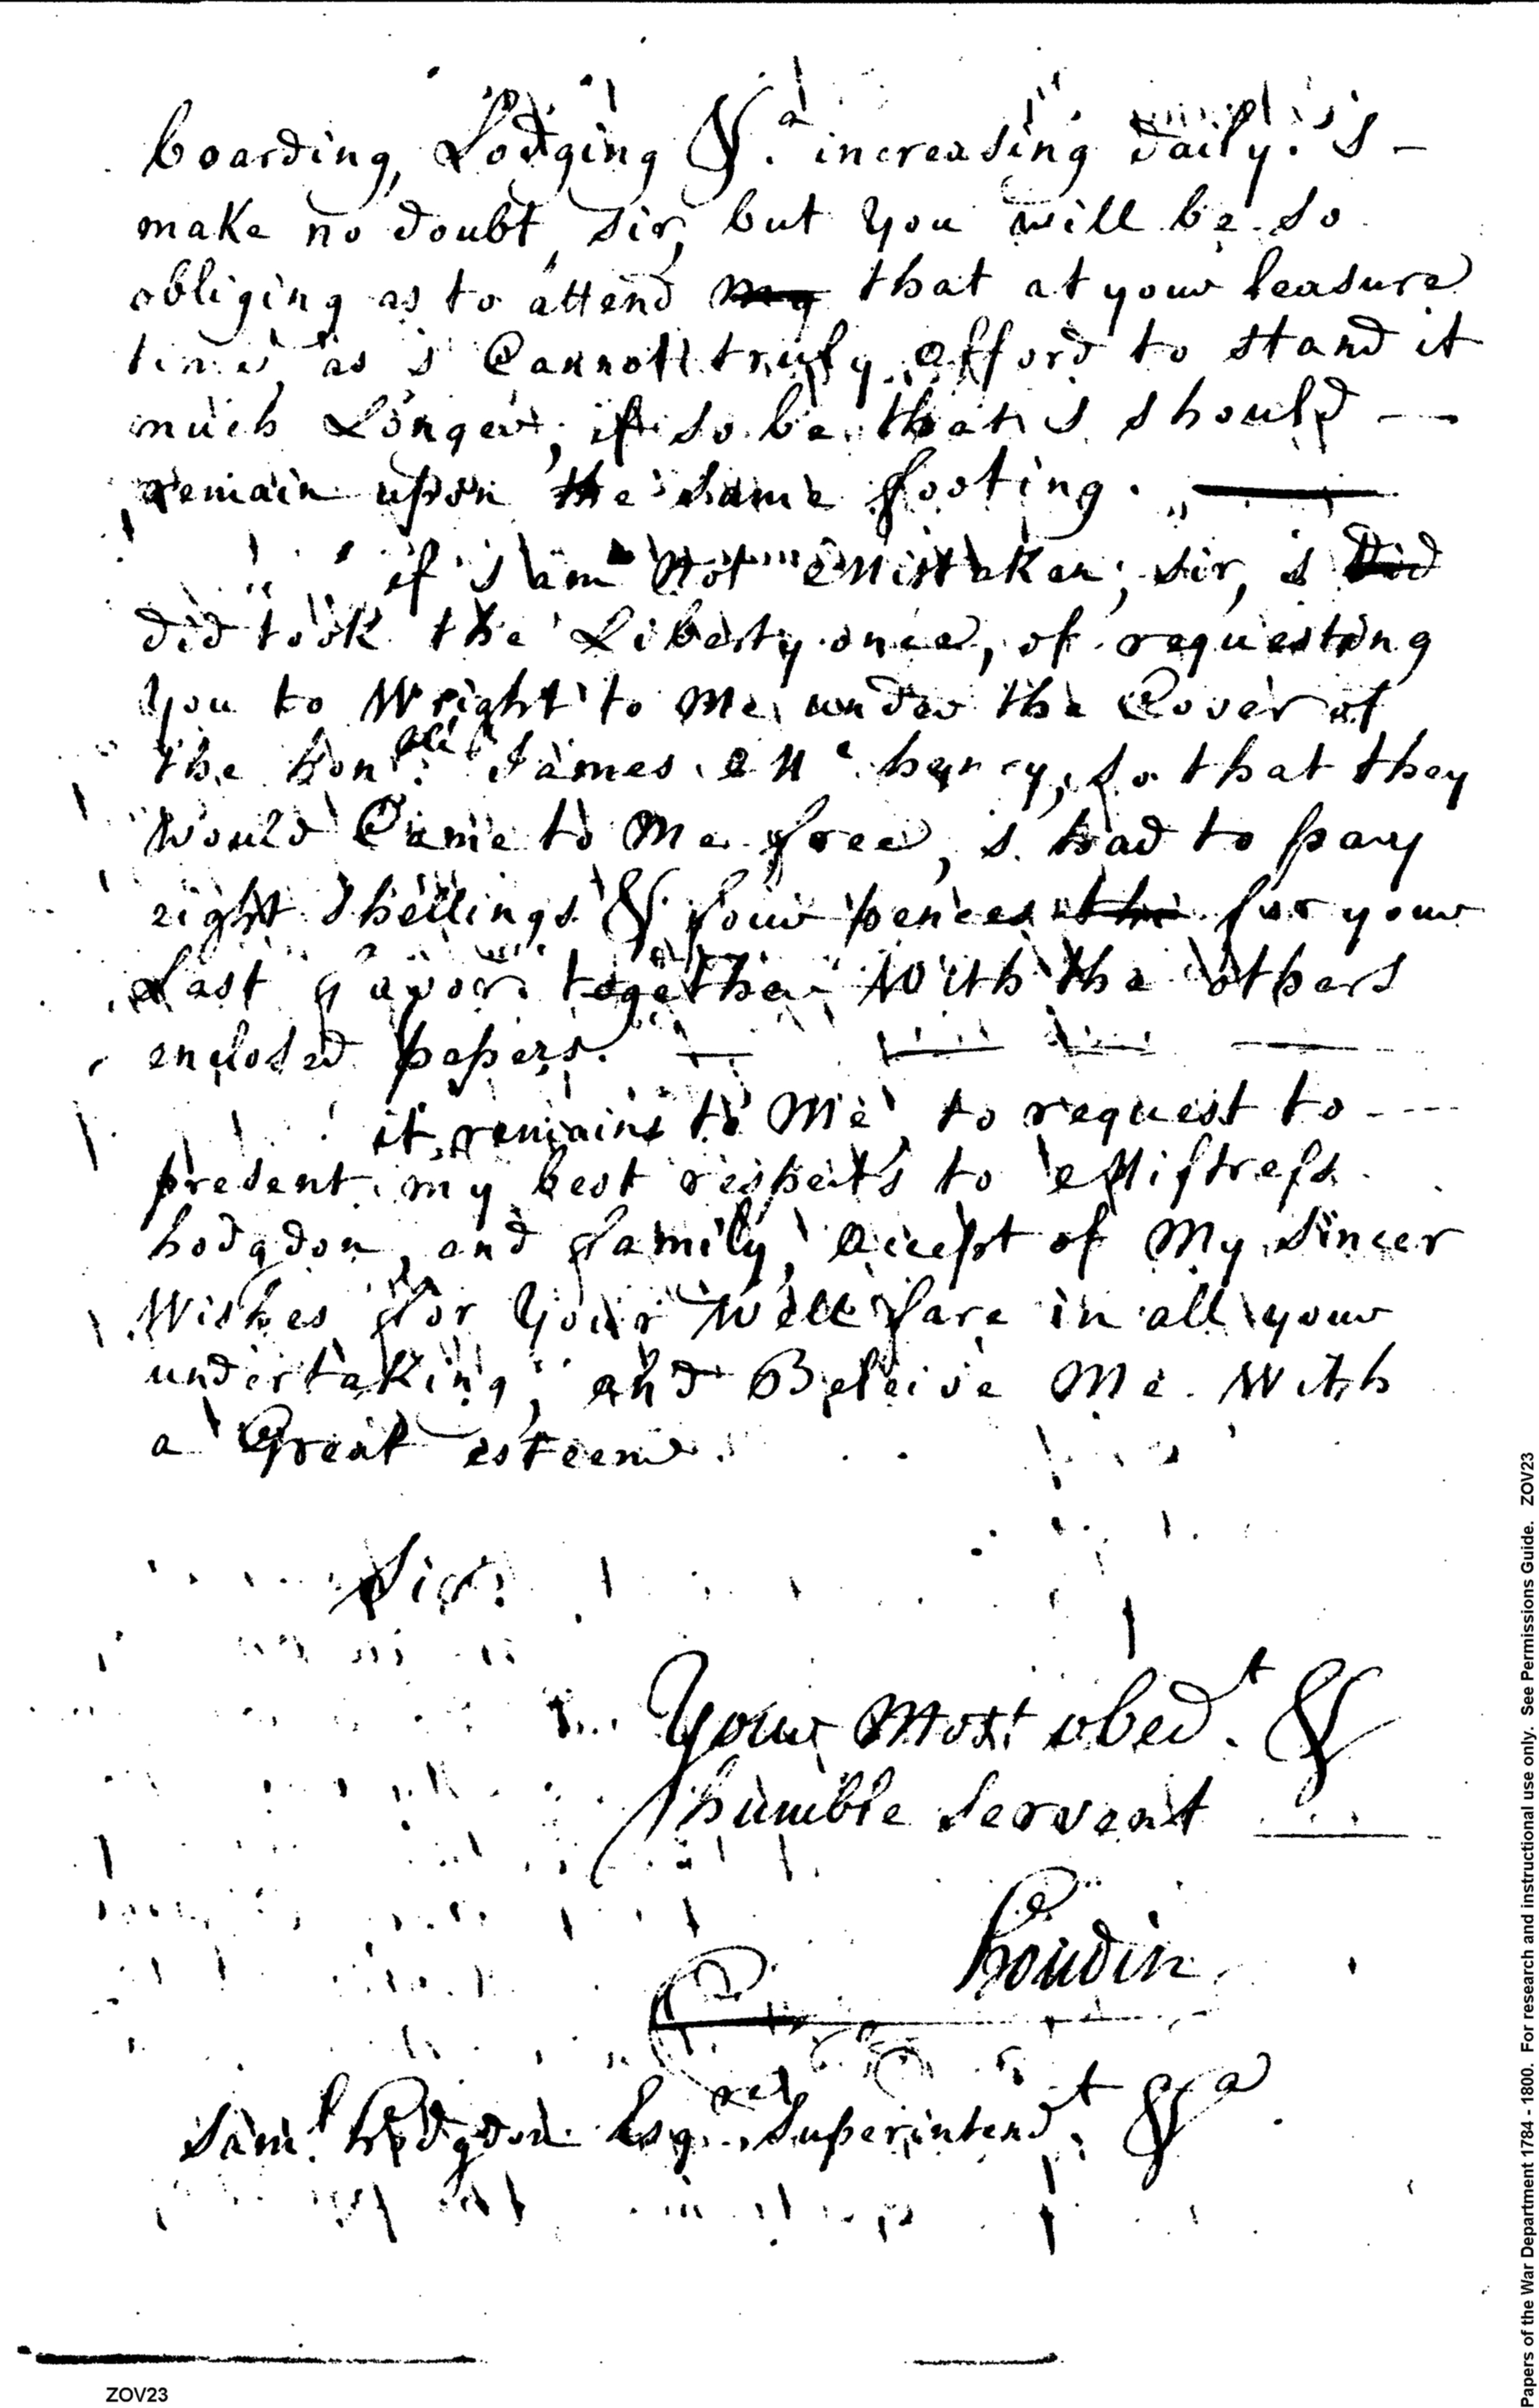 boarding, Lodging &.a increasing daily. I -
make no doubt, Sir, but you will be so
obliging as to attend my that at your leasure
time, as I Cannott truly, afford to stand it
much Longer; if so be that I should --
remain upon the same footing. —
if I am Not Mistaken; Sir, I Did
did took the Liberty once, of requesting
you to Wright to me, under the Cover of
the hon.ble James Mc henry, so that they
Would Came to Me free, I had to pay
eight Shellings & four pences the for your
Last favor together With the others
enclosed papers. — — — —
it remains to Me, to request to ---
present my best respects to Mistress
hodgdon, and family, accept of My Sincer
Wishes for Your Well fare in all your
undertaking; and Beleive Me With
a Great esteem.
Sir:
Your Most obed.t &
humble Servent —
houdin
Sam.l hodgdon Esq.re Superintend.t &a.
ZOV23
Papers of the War Department 1784 - 1800. For research and instructional use only. See Permissions Guide. ZOV23